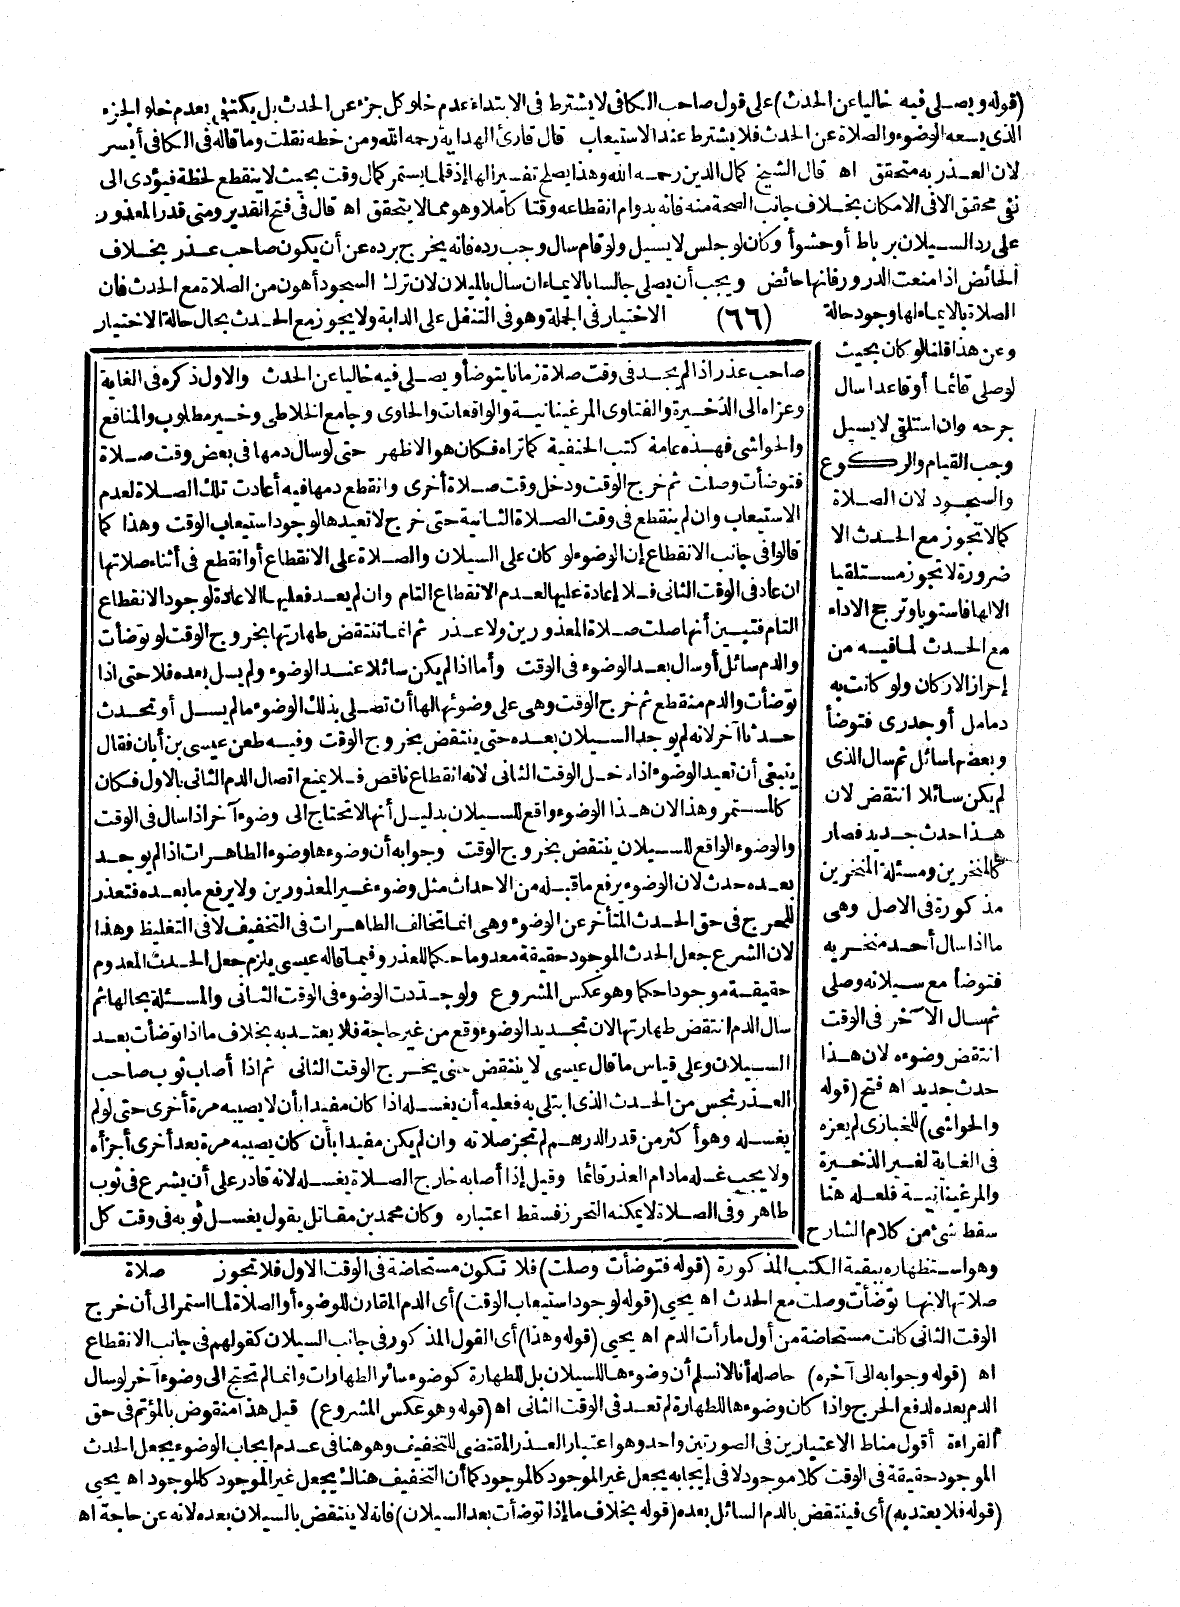 (قوله ويصلى فيه خاليا عن الحدث) على قول صاحب الكافى لا يشترط فى الابتداء عدم خلو كل جزء عن الحدث بل يكتفى بعدم خلو الجزء
الذى يسعه الوضوء والصلاة عن الحدث فلا يشترط عند الاستيعاب قال قارئ الهداية رحمه الله ومن خطه نقلت وما قاله فى الكافى أيسر
لان العذر به متحقق اه قال الشيخ كمال الدين رحمه الله وهذا يصلح تفسيرا لها إذ قلما يستمر كمال وقت بحيث لا ينقطع لحظة فيؤدى الى
نفى محققى الا فى الامكان بخلاف جانب الصحة منه فانه بدوام انقطاعه وقتا كاملا وهو مما لا يتحقق اه قال فى فتح القدير ومتى قدر المعذور
على رد السيلان برباط أو حشوأ وكان لو جلس لا يسيل ولو قام سال وجب رده فانه يخرج برده عن أن يكون صاحب عذر بخلاف
الحائض اذا منعت الدرور فانها حائض ويجب أن يصلى جالسا بالايماء ان سال بالميلان لان ترك السجود أهون من الصلاة مع الحدث فان
الصلاة بالايماء لها وجود حالة (٦٦) الاختيار فى الجملة وهو فى التنفل على الدابة ولا يجوز مع الحدث بحال حالة الاختيار
وعن هذا قلنا لو كان بحيث
لو صلى قائما أو قاعدا سال
جرحه وان استلقى لا يسيل
وجب القيام والركوع
والسجود لان الصلاة
كما لا تجوز مع الحدث الا
ضرورة لا تجوز مستلقيا
الا لها فاستويا وترجح الاداء
مع الحدث لما فيه من
إحراز الاركان ولو كانت به
دمامل أو جدرى فتوضأ
وبعضها سائل ثم سال الذى
لم يكن سائلا انتقض لان
هذا حدث جديد فصار
كالمنخرين ومسئلة المنخرين
مذكورة فى الاصل وهى
ما اذا سال أحد منخريه
فتوضأ مع سيلانه وصلى
ثم سال الآخر فى الوقت
انتقض وضوءه لان هذا
حدث جديد اه فتح (قوله
والحواشى) للخبازى لم يعزه
فى الغاية لغير الذخيرة
والمرغينانية فلعله هنا
سقط شئ من كلام الشارح
صاحب عذر اذا لم يجد فى وقت صلاة زمانا يتوضأ ويصلى فيه خاليا عن الحدث والاول ذكره فى الغاية
وعزاه الى الذخيرة والفتاوى المرغينانية والواقعات والحاوى وجامع الخلاطى وخير مطلوب والمنافع
والحواشى فهذه عامة كتب الحنفية كما تراه فكان هو الاظهر حتى لو سال دمها فى بعض وقت صلاة
فتوضأت وصلت ثم خرج الوقت ودخل وقت صلاة أخرى وانقطع دمها فيه أعادت تلك الصلاة لعدم
الاستيعاب وان لم ينقطع فى وقت الصلاة الثانية حتى خرج لا تعيدها لوجود استيعاب الوقت وهذا كما
قالوا فى جانب الانقطاع إن الوضوء لو كان على السيلان والصلاة على الانقطاع أو انقطع فى أثناء صلاتها
ان عاد فى الوقت الثانى فلا إعادة عليها لعدم الانقطاع التام وان لم يعد فعليها الاعادة لوجود الانقطاع
التام فتبين أنها صلت صلاة المعذورين ولا عذر ثم انما تنتقض طهارتها بخروج الوقت لو توضأت
والدم سائل أو سال بعد الوضوء فى الوقت وأما اذا لم يكن سائلا عند الوضوء ولم يسل بعده فلا حتى اذا
توضأت والدم منقطع ثم خرج الوقت وهى على وضوئها لها أن تصلى بذلك الوضوء ما لم يسل أو تحدث
حدثا آخر لانه لم يوجد السيلان بعده حتى ينتقض بخروج الوقت وفيه طعن عيسى بن أبان فقال
ينبغى أن تعيد الوضوء اذا دخل الوقت الثانى لانه انقطاع ناقص فلا يمنع اتصال الدم الثانى بالاول فكان
كالمستمر وهذا لان هذا الوضوء واقع للسيلان بدليل أنها لا تحتاج الى وضوء آخر اذا سال فى الوقت
والوضوء الواقع للسيلان ينتقض بخروج الوقت وجوابه أن وضوءها وضوء الطاهرات اذا لم يوجد
بعده حدث لان الوضوء يرفع ما قبله من الاحداث مثل وضوء غير المعذورين ولا يرفع ما بعده فتعذر
للحرج فى حق الحدث المتأخر عن الوضوء وهى انما تخالف الطاهرات فى التخفيف لا فى التغليظ وهذا
لان الشرع جعل الحدث الموجود حقيقة معدوما حكما للعذر وفيما قاله عيسى يلزم جعل الحدث المعدوم
حقيقة موجودا حكما وهو عكس المشروع ولو جددت الوضوء فى الوقت الثانى والمسئلة بحالها ثم
سال الدم انتقض طهارتها لان تجديد الوضوء وقع من غير حاجة فلا يعتد به بخلاف ما اذا توضأت بعد
السيلان وعلى قياس ما قال عيسى لا ينتقض حتى يخرج الوقت الثانى ثم اذا أصاب ثوب صاحب
العذر نجس من الحدث الذى ابتلى به فعليه أن يغسله اذا كان مفيدا بأن لا يصيبه مرة أخرى حتى لو لم
يغسله وهو أكثر من قدر الدرهم لم تجز صلاته وان لم يكن مفيدا بأن كان يصيبه مرة بعد أخرى أجزأه
ولا يجب غسله ما دام العذر قائما وقيل إذا أصابه خارج الصلاة يغسله لانه قادر على أن يشرع فى ثوب
طاهر وفى الصلاة لا يمكنه التحرز فسقط اعتباره وكان محمد بن مقاتل يقول يغسل ثوبه فى وقت كل
صلاة
وهو استظهاره ببقية الكتب المذكورة (قوله فتوضأت وصلت) فلا تكون مستحاضة فى الوقت الاول فلا تجوز
صلاتها لانها توضأت وصلت مع الحدث اه يحيى (قوله لوجود استيعاب الوقت) أى الدم المقارن للوضوء أو الصلاة لما استمر الى أن خرج
الوقت الثانى كانت مستحاضة من أول ما رأت الدم اه يحيى (قوله وهذا) أى القول المذكور فى جانب السيلان كقولهم فى جانب الانقطاع
اه (قوله وجوابه الى آخره) حاصله أنا لا نسلم أن وضوءها للسيلان بل للطهارة كوضوء سائر الطهارات وانما لم تحتج الى وضوء آخر لو سال
الدم بعده لدفع الحرج واذا كان وضوءها للطهارة لم تعد فى الوقت الثانى اه (قوله وهو عكس المشروع) قيل هذا منقوض بالمؤتم فى حق
القراءة أقول مناط الاعتبارين فى الصورتين واحد وهو اعتبار العذر المقتضى للتخفيف وهو هنا فى عدم ايجاب الوضوء يجعل الحدث
الموجود حقيقة فى الوقت كلا موجود لا فى إيجابه يجعل غير الموجود كالموجود كما أن التخفيف هناك يجعل غير الموجود كالموجود اه يحيى
(قوله فلا يعتد به) أى فينتقض بالدم السائل بعده (قوله بخلاف ما إذا توضأت بعد السيلان) فانه لا ينتقض بالسيلان بعده لانه عن حاجة اه